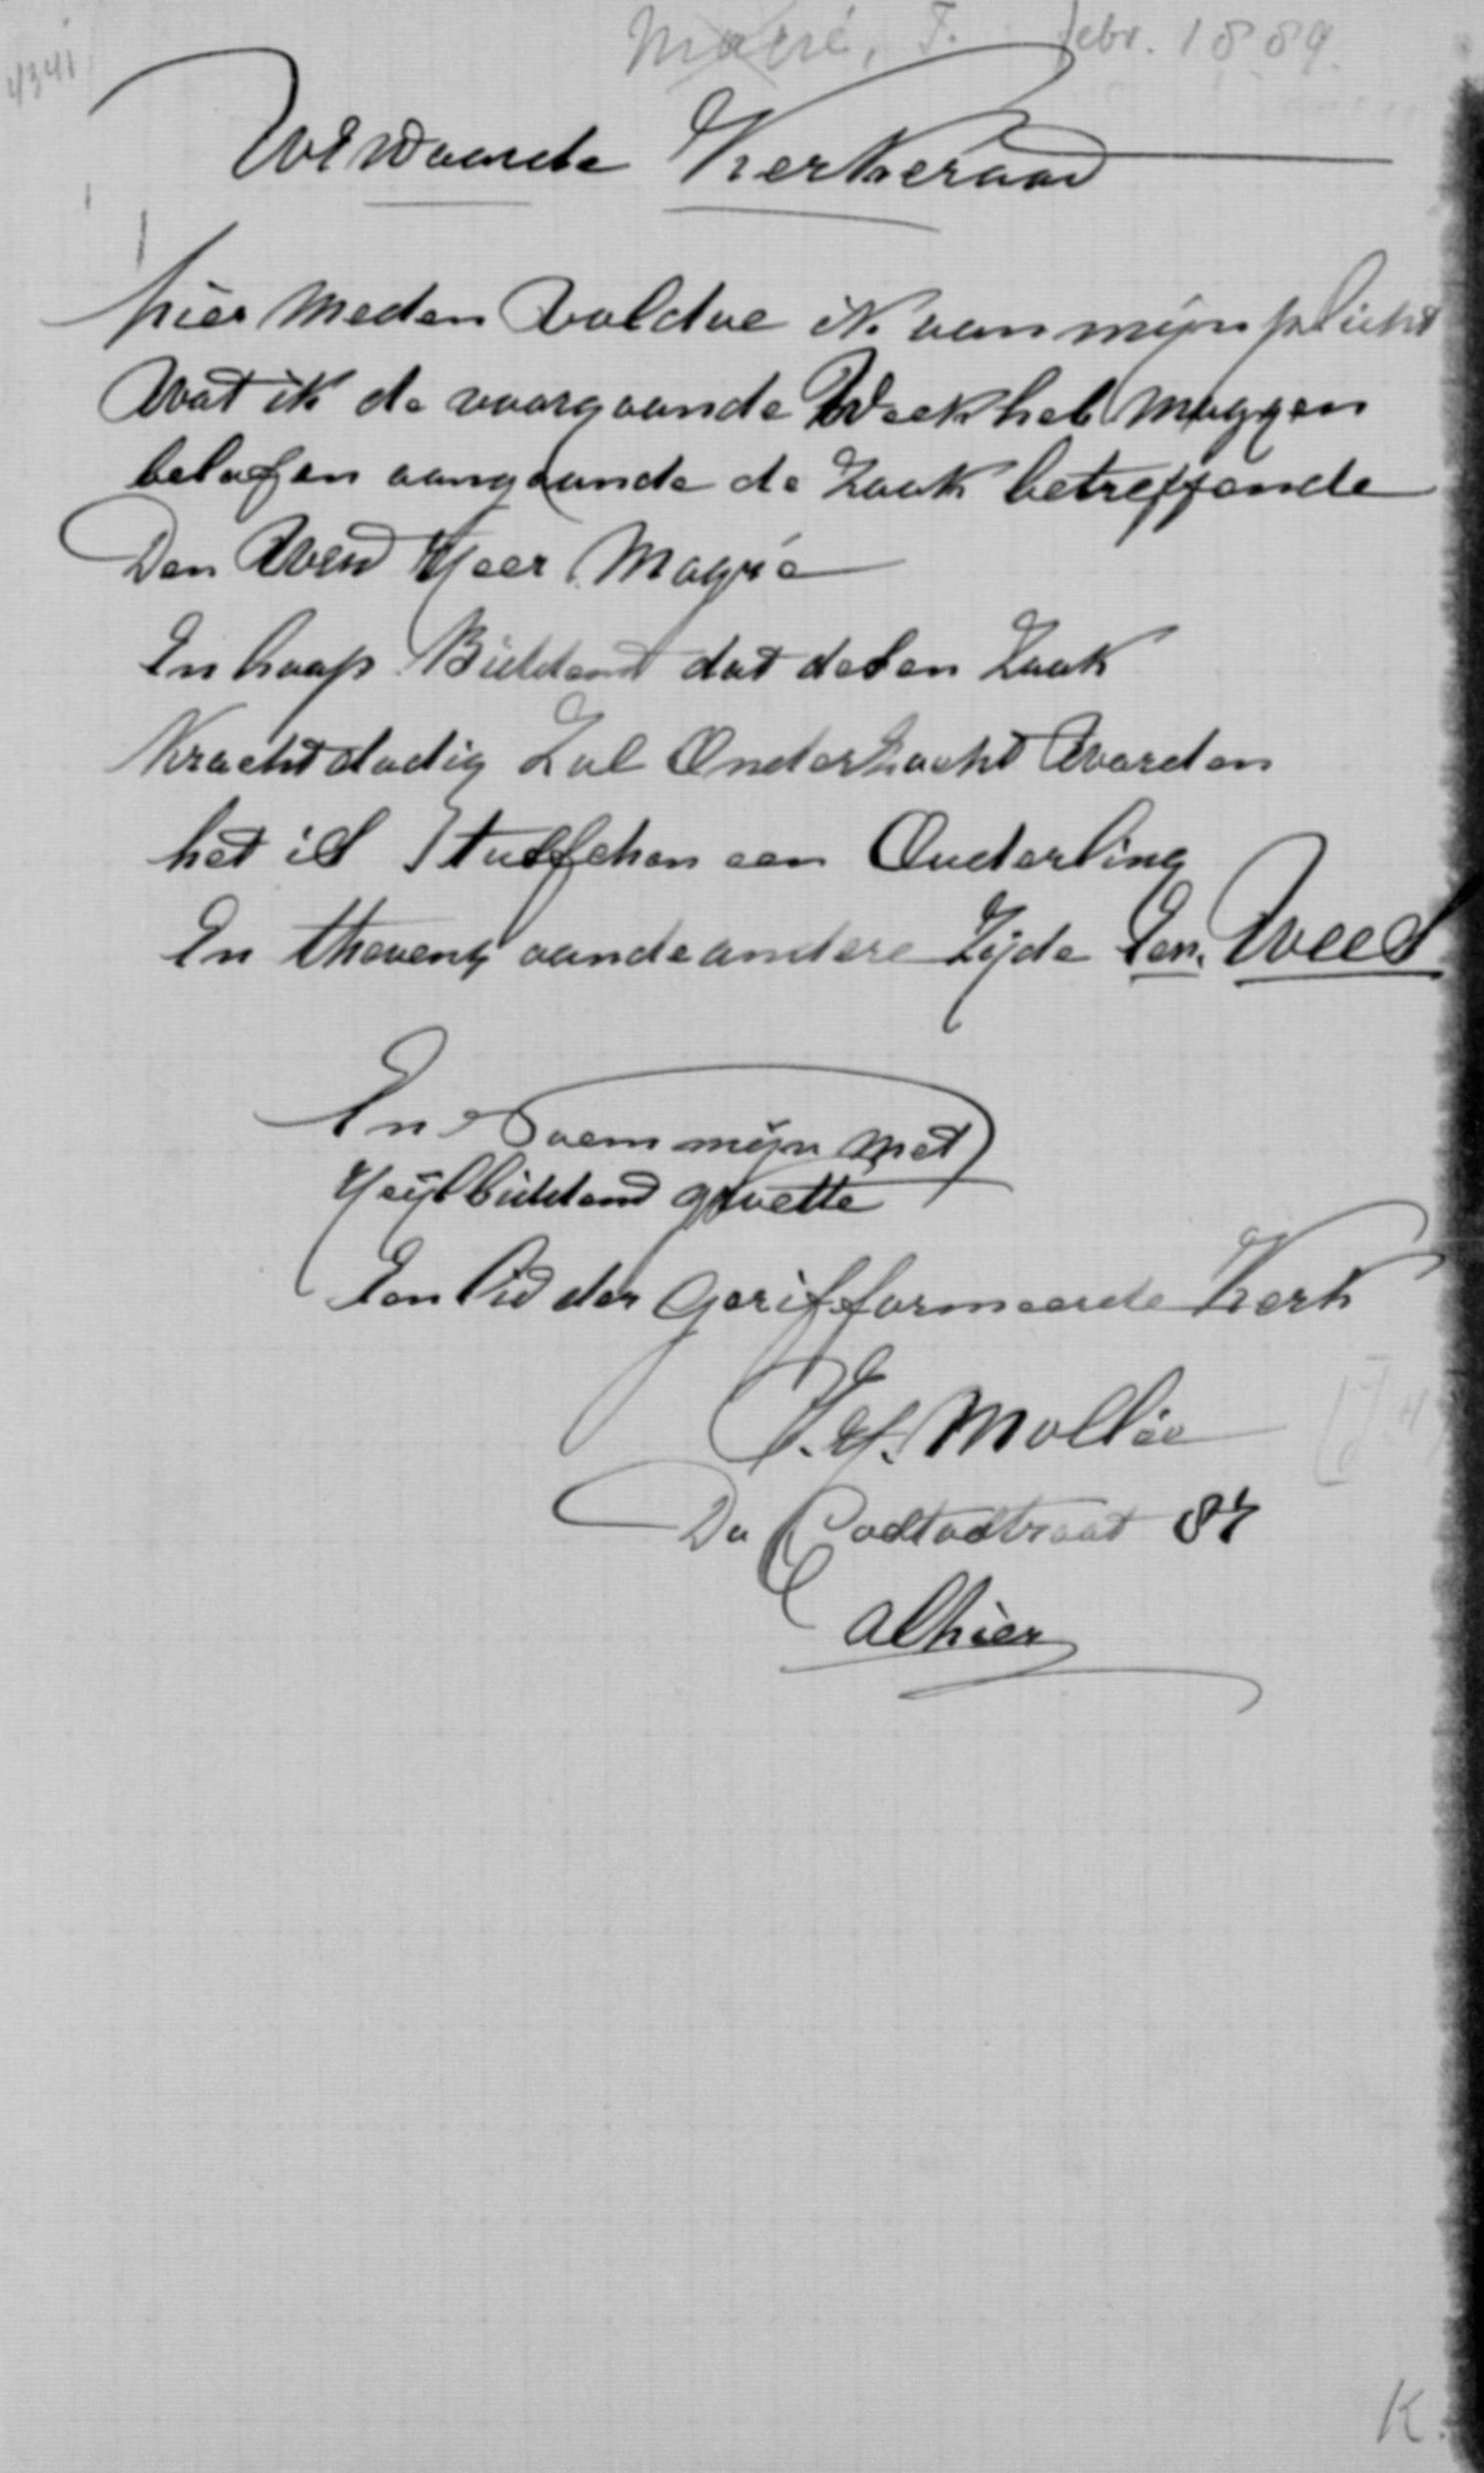 4341
Macré, F. febr. 1889.
WelWaarde Kerkeraad
hier meden Voldoe ik aan mijn plicht
Wat ik de voorgaande Week heb moggen
belofen aangaande de Zaak betreffende
Den Heer Magré
In hoop Biddend dat desen Zaak
Krachtdadig Zal Onderzocht Worden
het is Stusschen een Ouderling
En thevens aan de andere Zijde Een. Wees
En Noem mijn met
Heijlbiddend groette
Een Lid der Gerifformeerde Kerk
J. H. Mollie
Da Costastraat 87
alhier
K.